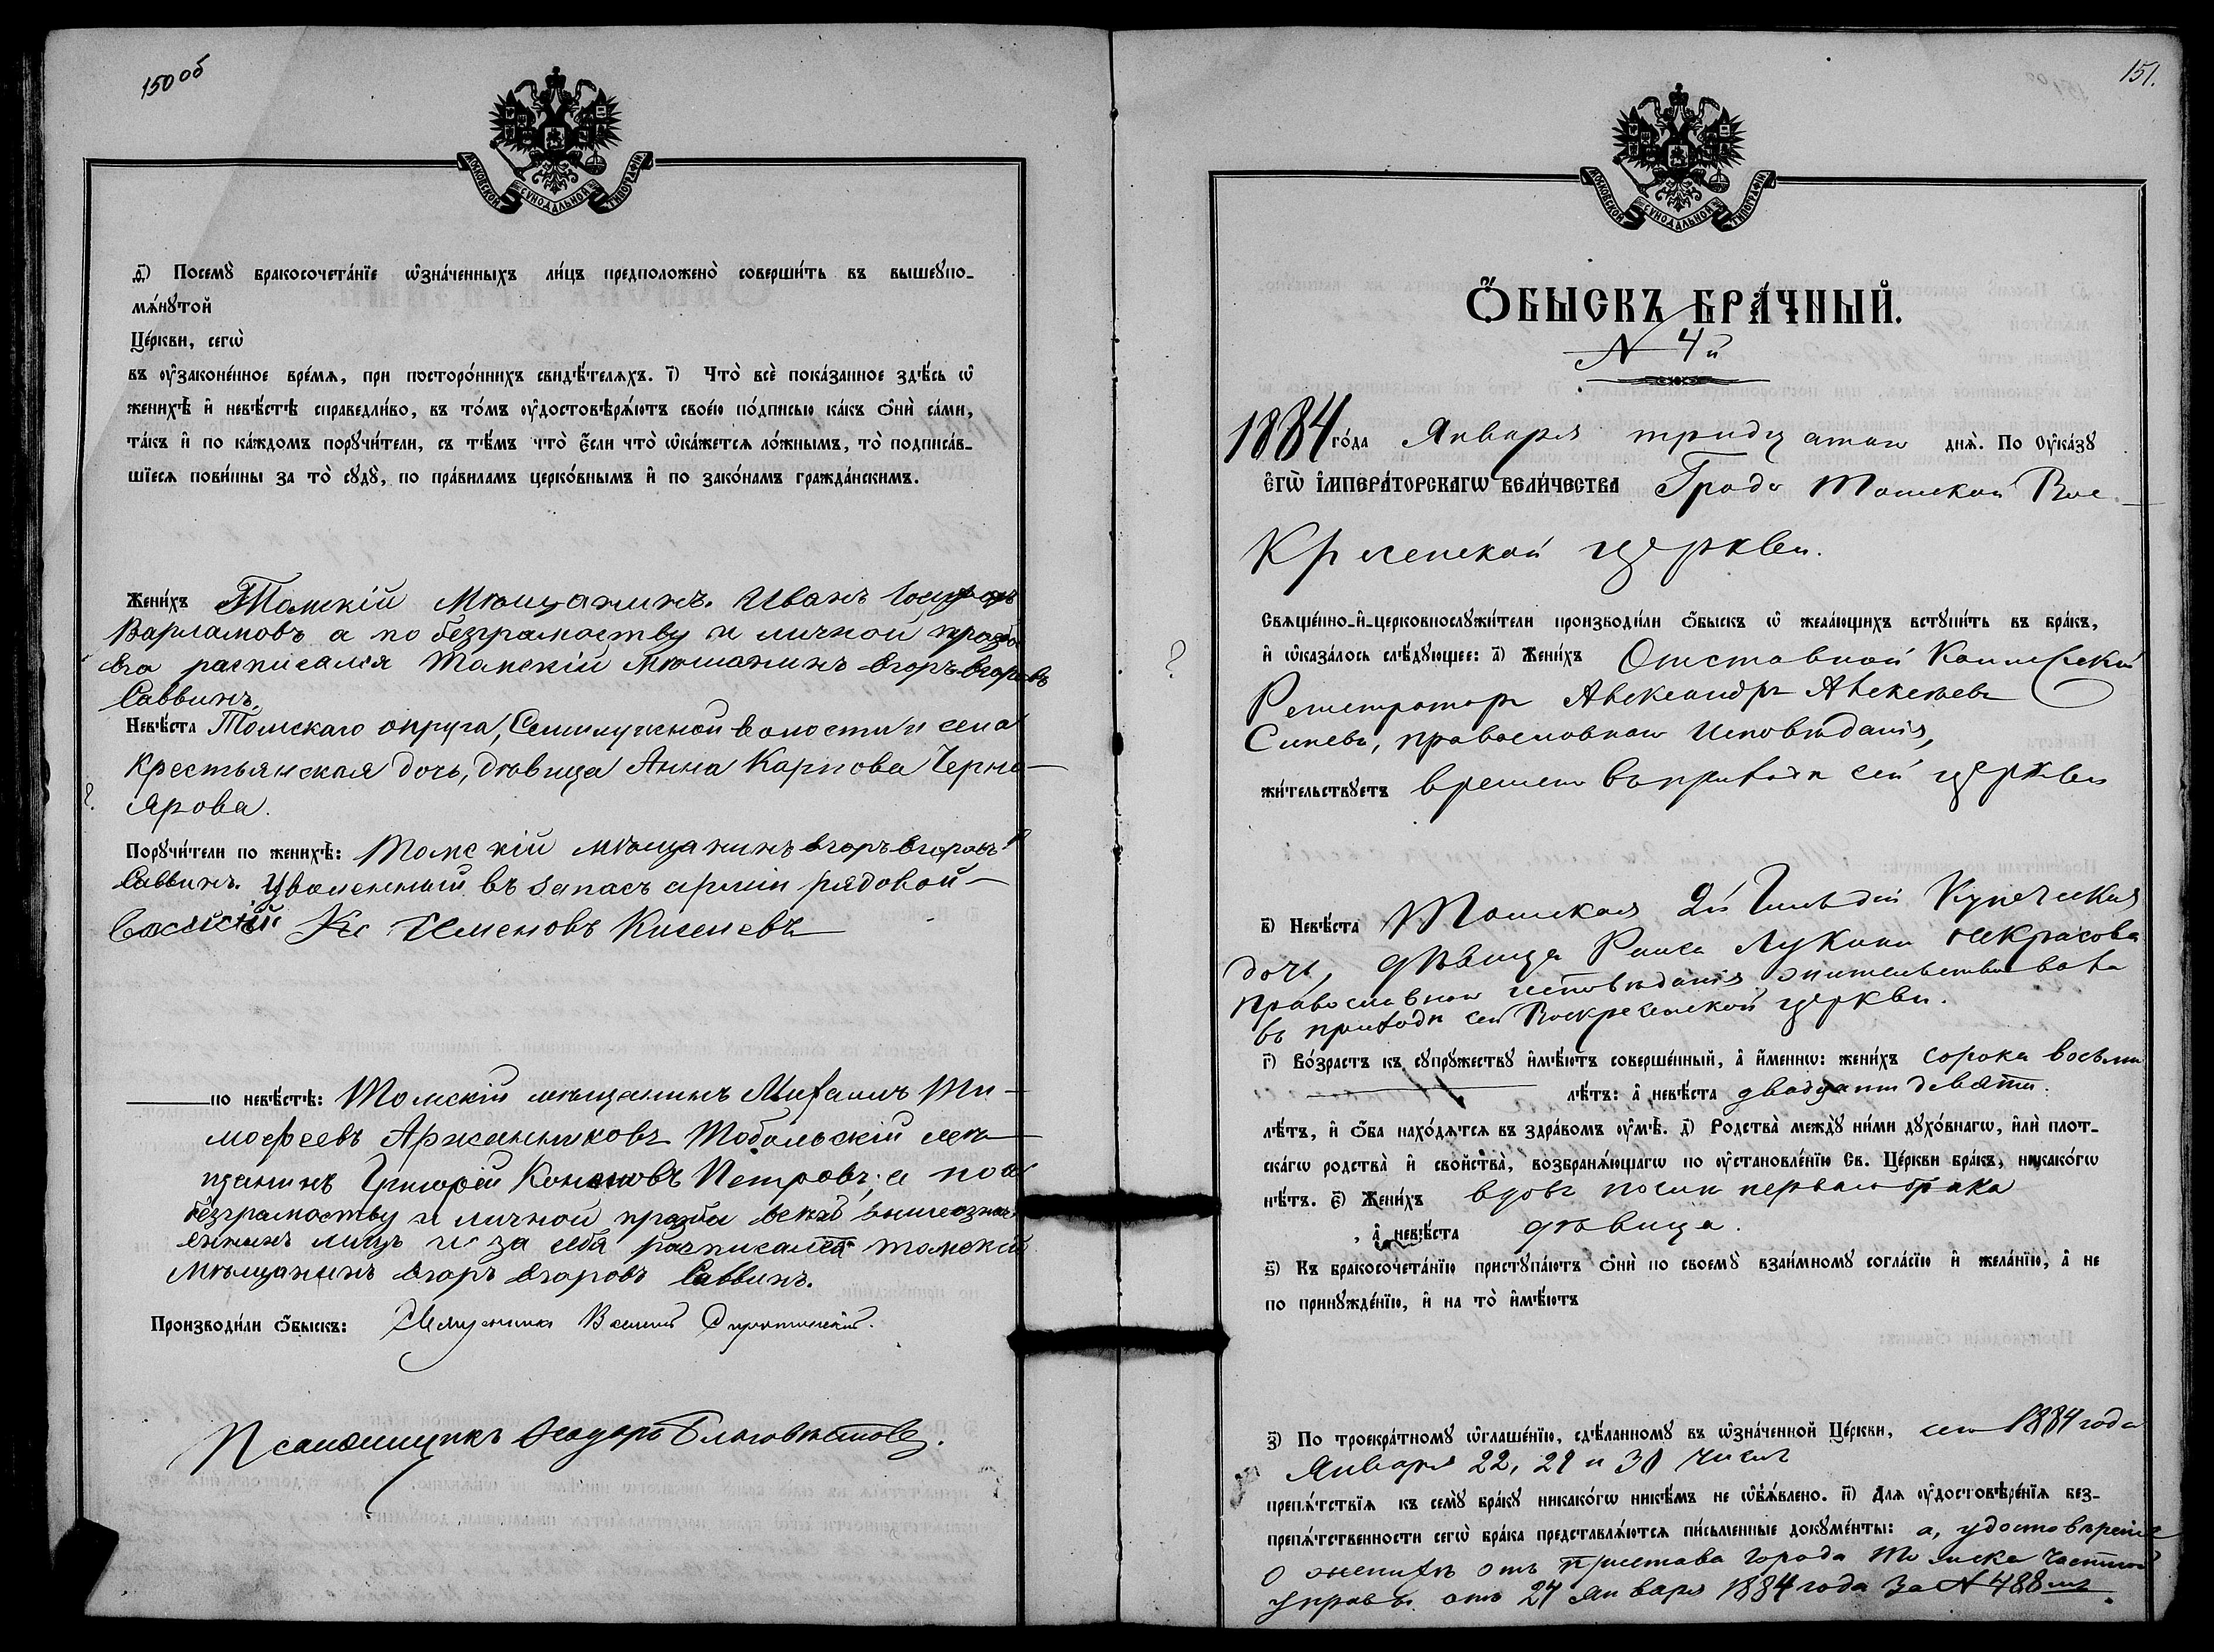 150 об
МОСКОВСКОЙ СѴНОДАЛЬНОЙ ТИПОГРАФІИ
д҃і) Посемꙋ̀ бракосочета́нїе ѡ҆зна́ченныхъ ли́цъ предположено̀ соверши́ть въ вышеꙋпо-
мѧ́нꙋтой
Це́ркви, сегѡ̀
въ ᲂу҆зако́не́нное вре́мѧ, при посторо́ннихъ свидѣ́телѧхъ. і҃) Что̀ всѐ пока́занное здѣ́сь ѡ҆
женихѣ̀ и҆ невѣ́стѣ справедли́во, въ то́мъ ᲂу҆достовѣрѧ́ютъ свое́ю по́дписью ка́къ ѻ҆нѝ са́ми,
та́къ и҆ по ка́ждомъ порꙋчи́тели, съ тѣ́мъ что̀ є҆́сли что̀ ѡ҆ка́жетсѧ ло́жнымъ, то̀ подписа́в-
шїесѧ пови́нны за то̀ сꙋдꙋ̀, по пра́виламъ церко́внымъ и҆ по зако́намъ гражда́нскимъ.
Жени́хъ Томскій Мѣщанинъ. Иванъ
Варламовъ а по безграмоству и личной прозбѣ
его расписался Томскій мѣшанинъ Егоръ Егоровъ
Саввинъ.
Невѣ́ста Томскаго округа, Семилужной волости и села
Крестьянская дочь, дѣвица Анна Карпова Черно-
ярова.
Порꙋчи́тели по женихѣ̀: Томскій мѣщанинъ Егоръ Егоровъ
Саввинъ. Уволенный въ запасъ арміи рядовой
Василій Семеновъ Киселевъ
по невѣ́стѣ: Томскій мѣщанинъ Михаилъ Ти-
мофеевъ Аржанниковъ Тобольскій мѣ-
щанинъ Григорій Кононовъ Петровъ; а по
безграмоству и личной прозбѣ всехъ вышеозна-
ченныхъ лицъ и за себя росписался томскій
Мѣщанинъ Егоръ Егоровъ Саввинъ.
Производи́ли ѻ҆́быскъ: Василій
Псаломщикъ Ѳеодоръ Благовѣстовъ.
151.
МОСКОВСКОЙ СѴНОДАЛЬНОЙ ТИПОГРАФІИ
Ѻ҆́БЫСКЪ БРА́ЧНЫЙ.
N 4й
1884 го́да Января тридцатаго днѧ̀. По Оу҆ка́зꙋ
Є҆ГѠ̀ И҆МПЕРА́ТОРСКАГѠ ВЕЛИ́ЧЕСТВА Градо Томской Вос-
кресенской церкви.
Свѧще́нно-и҆-церковнослꙋжи́тели производи́ли ѻ҆́быскъ ѡ҆ жела́ющихъ встꙋпи́ть въ бра́къ,
и҆ ѡ҆каза́лось слѣ́дꙋющее: а҃) Жени́хъ Отставной Коллежскій
Регистраторъ Александръ Алексѣевъ
Синевъ, православнаго Исповѣданія,
жи́тельствꙋетъ времен въ приходѣ сей церкви
в҃) Невѣ́ста Томская 2й Гильдіи Купеческая
дочь, дѣвица Раиса Лукина Некрасова
православнаго исповѣданія жительствовала
въ приходѣ сей Воскресенской церкви.
г҃) Во́зрастъ къ сꙋпрꙋ́жествꙋ и҆мѣ́ютъ соверше́нный, а҆ и҆́меннѡ: жени́хъ сорока восьми
лѣ́тъ: а҆ невѣ́ста двадцати девяти
лѣ́тъ, и҆ ѻ҆́ба нахо́дѧтсѧ въ здра́вомъ ᲂу҆мѣ̀. д҃) Родства̀ междꙋ̀ ни́ми дꙋхо́внагѡ, и҆лѝ плот-
ска́гѡ родства̀ и҆ сво́йства̀, возбранѧ́ющагѡ по ᲂу҆становле́нїю Св. Це́ркви бра́къ, никако́гѡ
нѣ́тъ. є҃) Жени́хъ вдовъ послѣ перваго брака
, а҆ невѣ́ста дѣвица.
ѕ҃) Къ бракосочета́нїю пристꙋпа́ютъ ѻ҆нѝ по своемꙋ̀ взаи́мномꙋ согла́сїю и҆ жела́нїю, а҆ не
по принꙋжде́нїю, и҆ на то̀ и҆мѣ́ютъ
з҃) По троекра́тномꙋ ѡ҆глаше́нїю, сдѣ́ланномꙋ въ ѡ҆зна́ченной Це́ркви, сего 1884 года
Января 22, 29 и 30 чиселъ
препѧ́тствїѧ къ семꙋ̀ бра́кꙋ никако́гѡ никѣ́мъ не ѡ҆б̾ѧ́влено. и҃) Длѧ ᲂу҆достовѣре́нїѧ без-
препѧ́тственности сегѡ̀ бра́ка представлѧ́ютсѧ пи́сьменные докꙋме́нты: а, удостовѣреніе
о женихѣ отъ пристава города Томска частной
управы отъ 27 января 1884 года за N 488мъ.